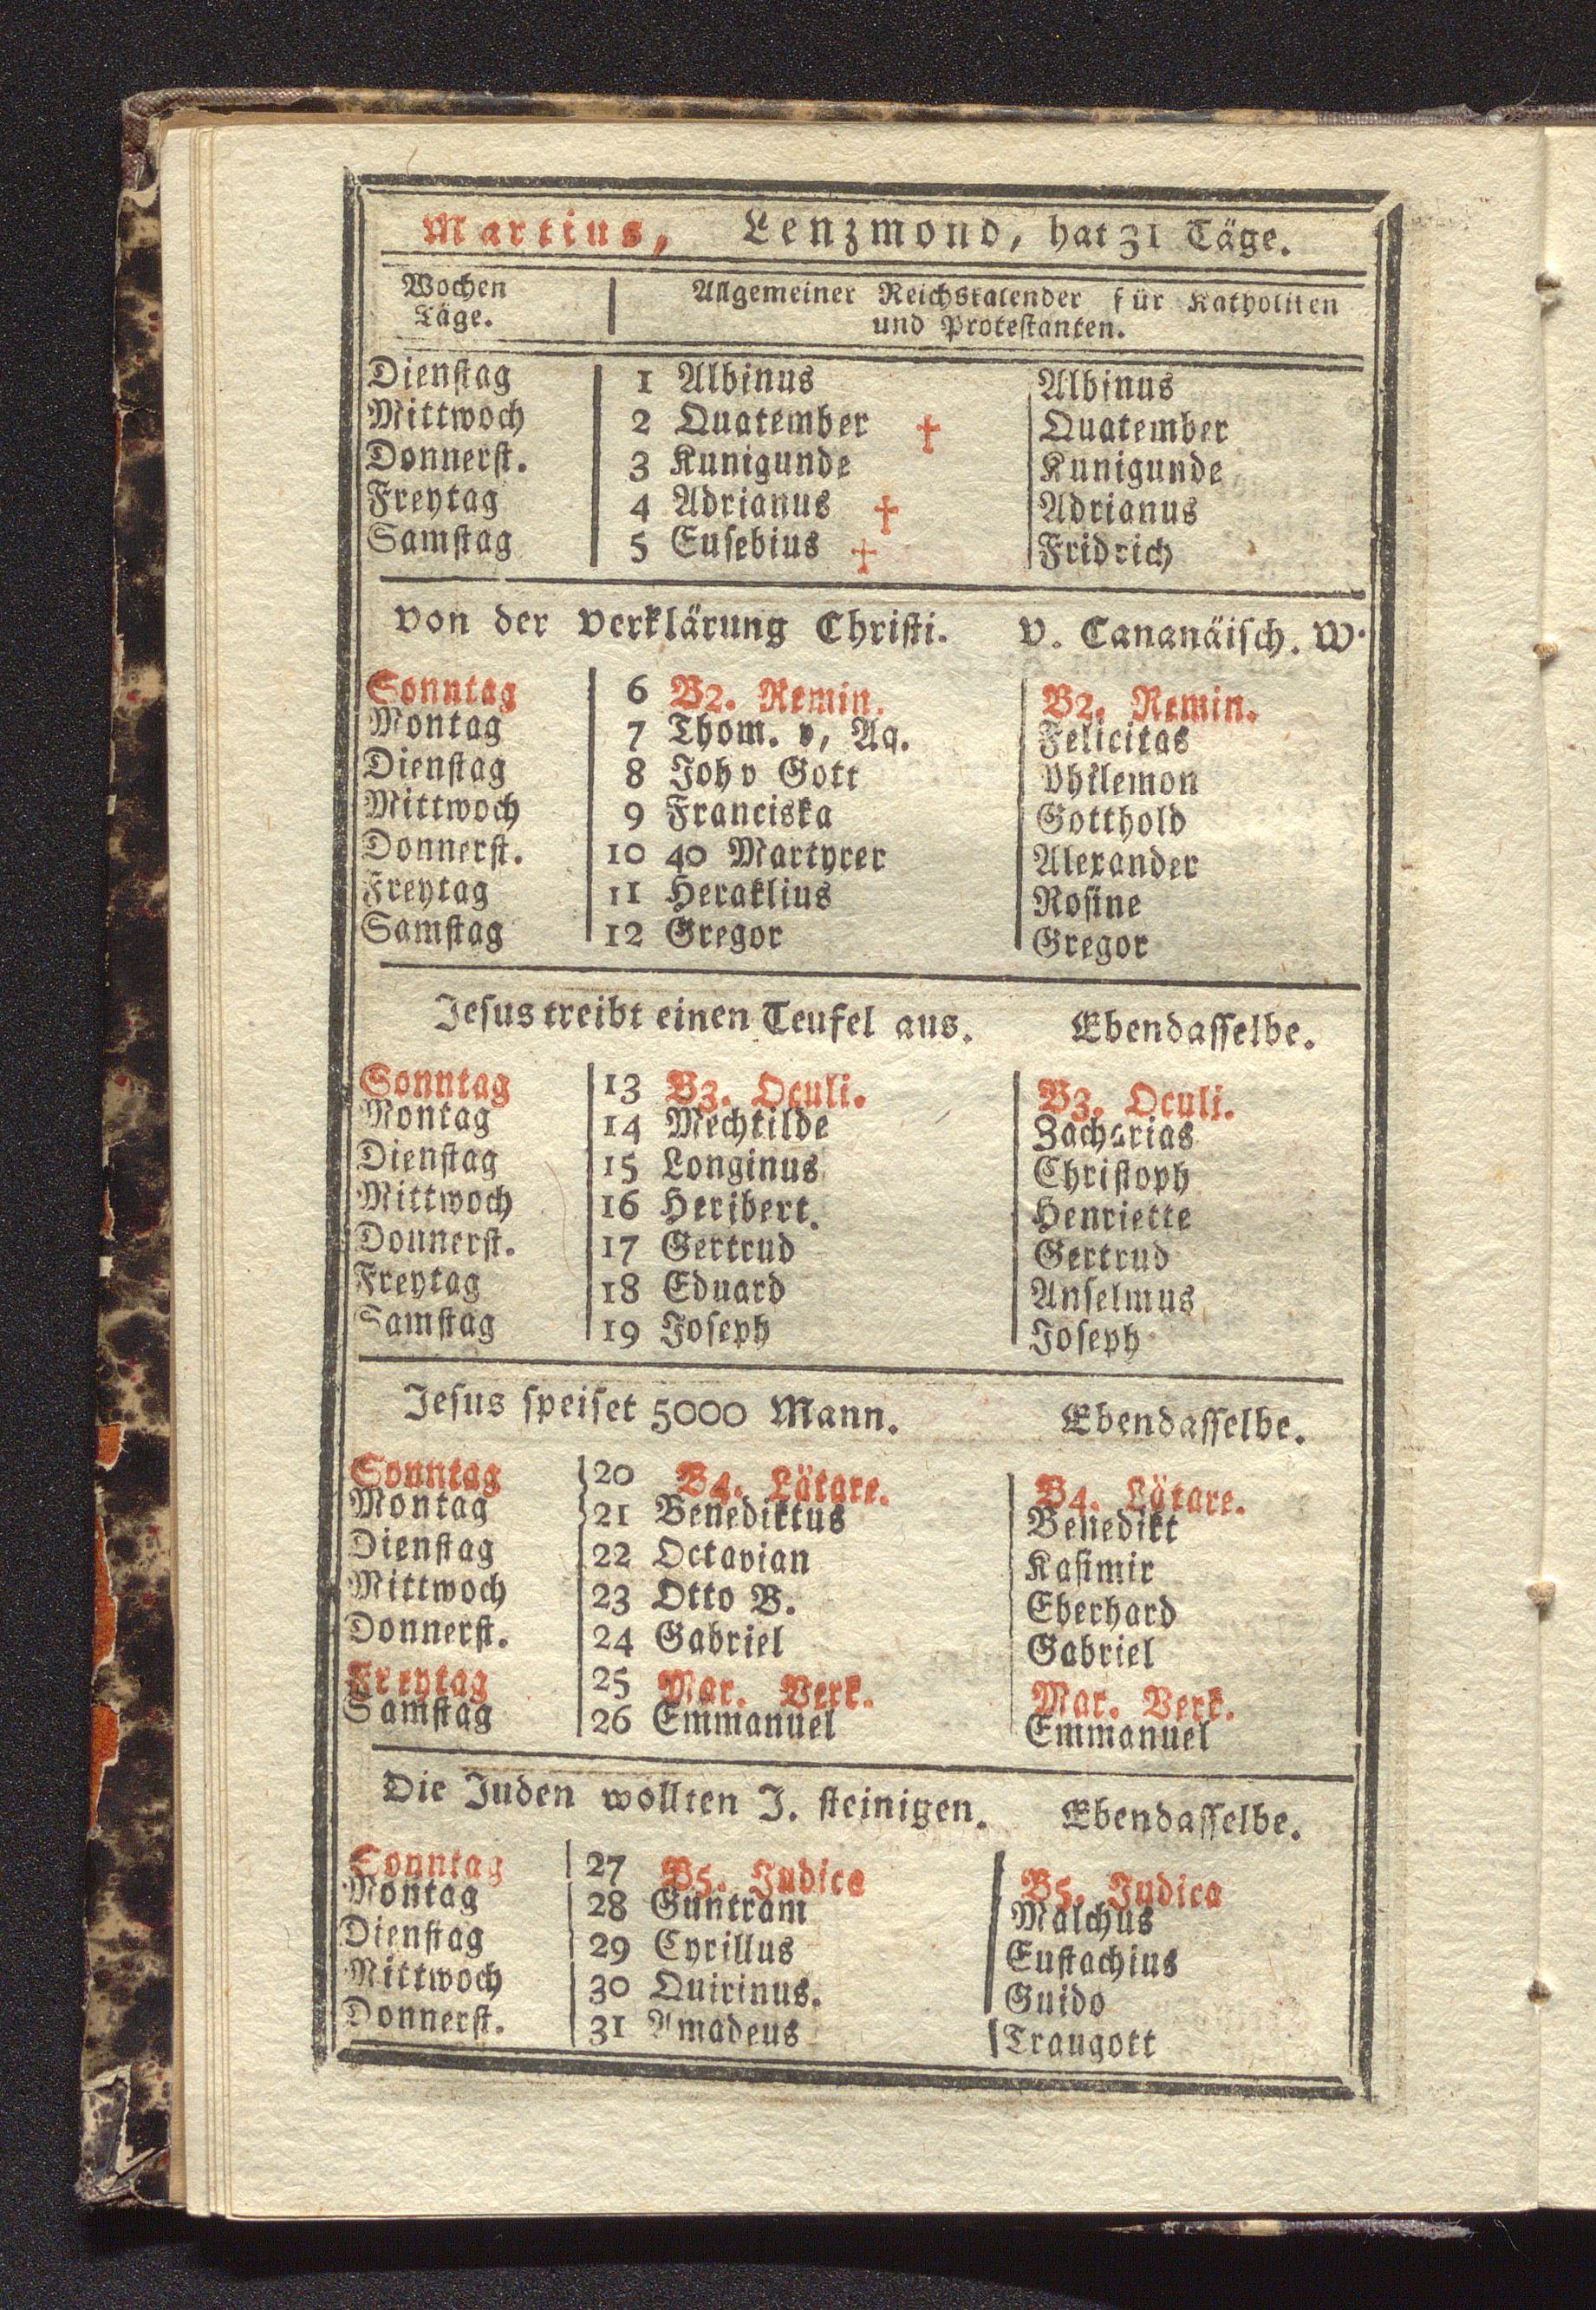 Martius, Lenzmond, hat 31 Täge.
Wochen Täge. Allgemeiner Reichskalender für Katholiken und Protestanten.
Dienstag 1 Albinus Albinus
Mittwoch 2 Quatember † Quatember
Donnerst. 3 Kunigunde Kunigunde
Freytag 4 Adrianus † Adrianus
Samstag 5 Eusebius † Fridrich
Von der Verklärung Christi. V. Cananäisch. W.
Sonntag 6 B2. Remin. B2. Remin.
Montag 7 Thom. v, Aq. Felicitas
Dienstag 8 Joh v Gott Phklemon
Mittwoch 9 Franciska Gotthold
Donnerst. 10 40 Martyrer Alexander
Freytag 11 Heraklius Rosine
Samstag 12 Gregor Gregor
Jesus treibt einen Teufel aus. Ebendasselbe.
Sonntag 13 B3. Oculi. B3. Oculi.
Montag 14 Mechtilde Zacharias
Dienstag 15 Longinus Christoph
Mittwoch 16 Heribert. Henriette
Donnerst. 17 Gertrud Gertrud
Freytag 18 Eduard Anselmus
Samstag 19 Joseph Joseph
Jesus speiset 5000 Mann. Ebendasselbe.
Sonntag 20 B4. Lätare. B4. Lätare.
Montag 21 Benediktus Benedikt
Dienstag 22 Octavian Kasimir
Mittwoch 23 Otto B. Eberhard
Donnerst. 24 Gabriel Gabriel
Freytag 25 Mar. Verk. Mar. Verk.
Samstag 26 Emmanuel Emmanuel
Die Juden wollten J. steinigen. Ebendasselbe.
Sonntag 27 B5. Judica B5. Judica
Montag 28 Guntram Malchus
Dienstag 29 Cyrillus Eustachius
Mittwoch 30 Quirinus. Guido
Donnerst. 31 Amadeus Traugott